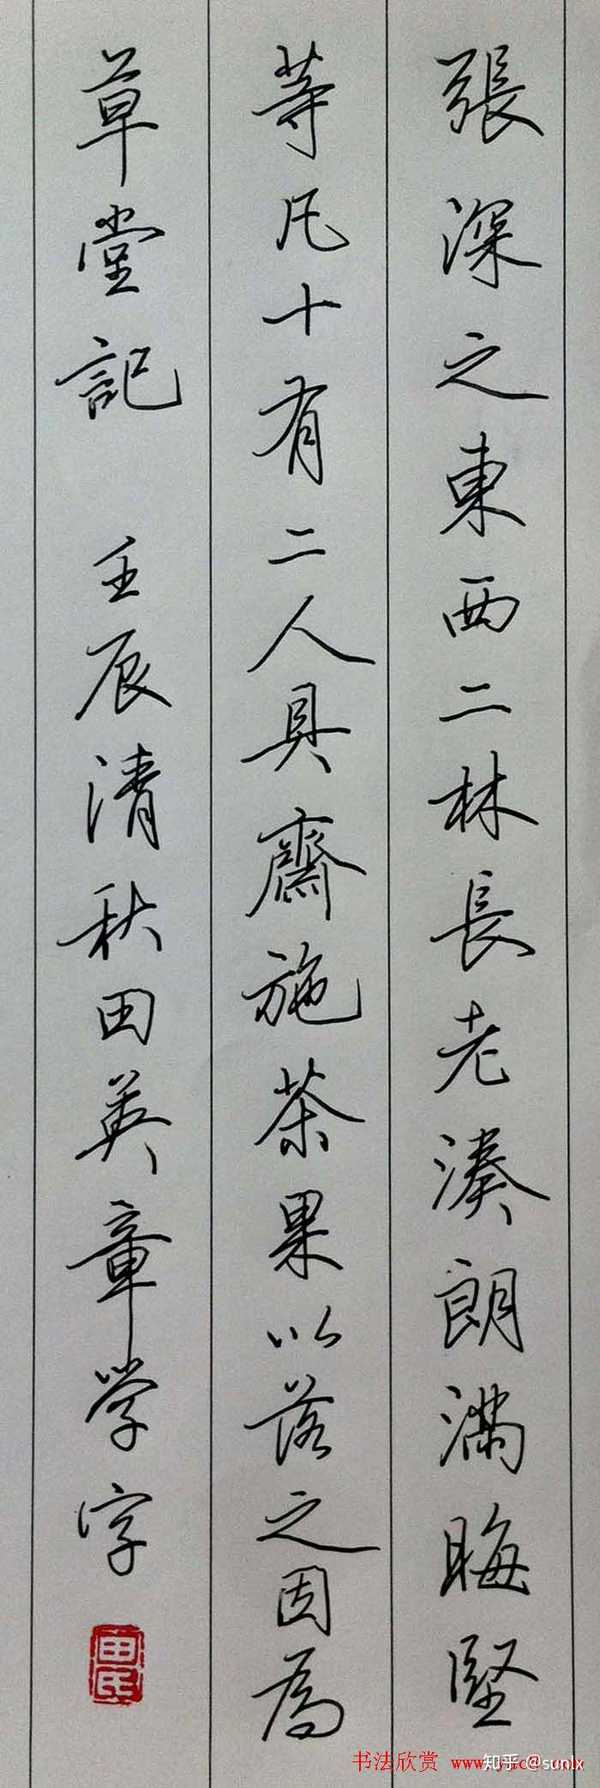 張深之東西二林長老湊朗滿晦堅
等凡十有二人具齋施茶果以落之因為
草堂記 壬辰清秋田英章學字
田氏
书法欣赏
知乎 @sunlx